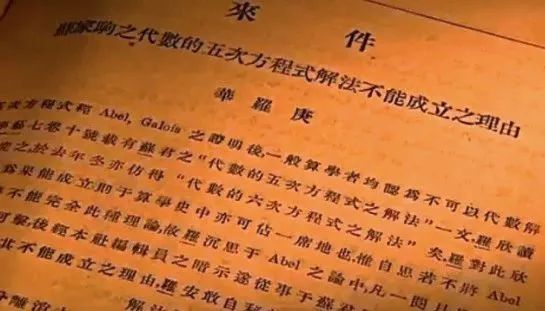 來件
蘇家駒之代數的五次方程式解法不能成立之理由
華羅庚
次方程式經 Abel, Galois 之證明後,一般算學者均認爲不可以代數解
學藝七卷十號載有蘇君之“代數的五次方程式之解法”一文,羅欣讀
之於去年冬亦仿得“代數的六次方程式之解法”矣,羅對此欣
爲果能成立則于算學史中亦可佔一席地也,惟自思若不將 Abel
不能完全此種理論,故羅沉思于 Abel 之論中,凡一閱月
可擊後經本社編輯員之暗示遂從事于蘇君
其不能成立之理由,羅安敢自
解法